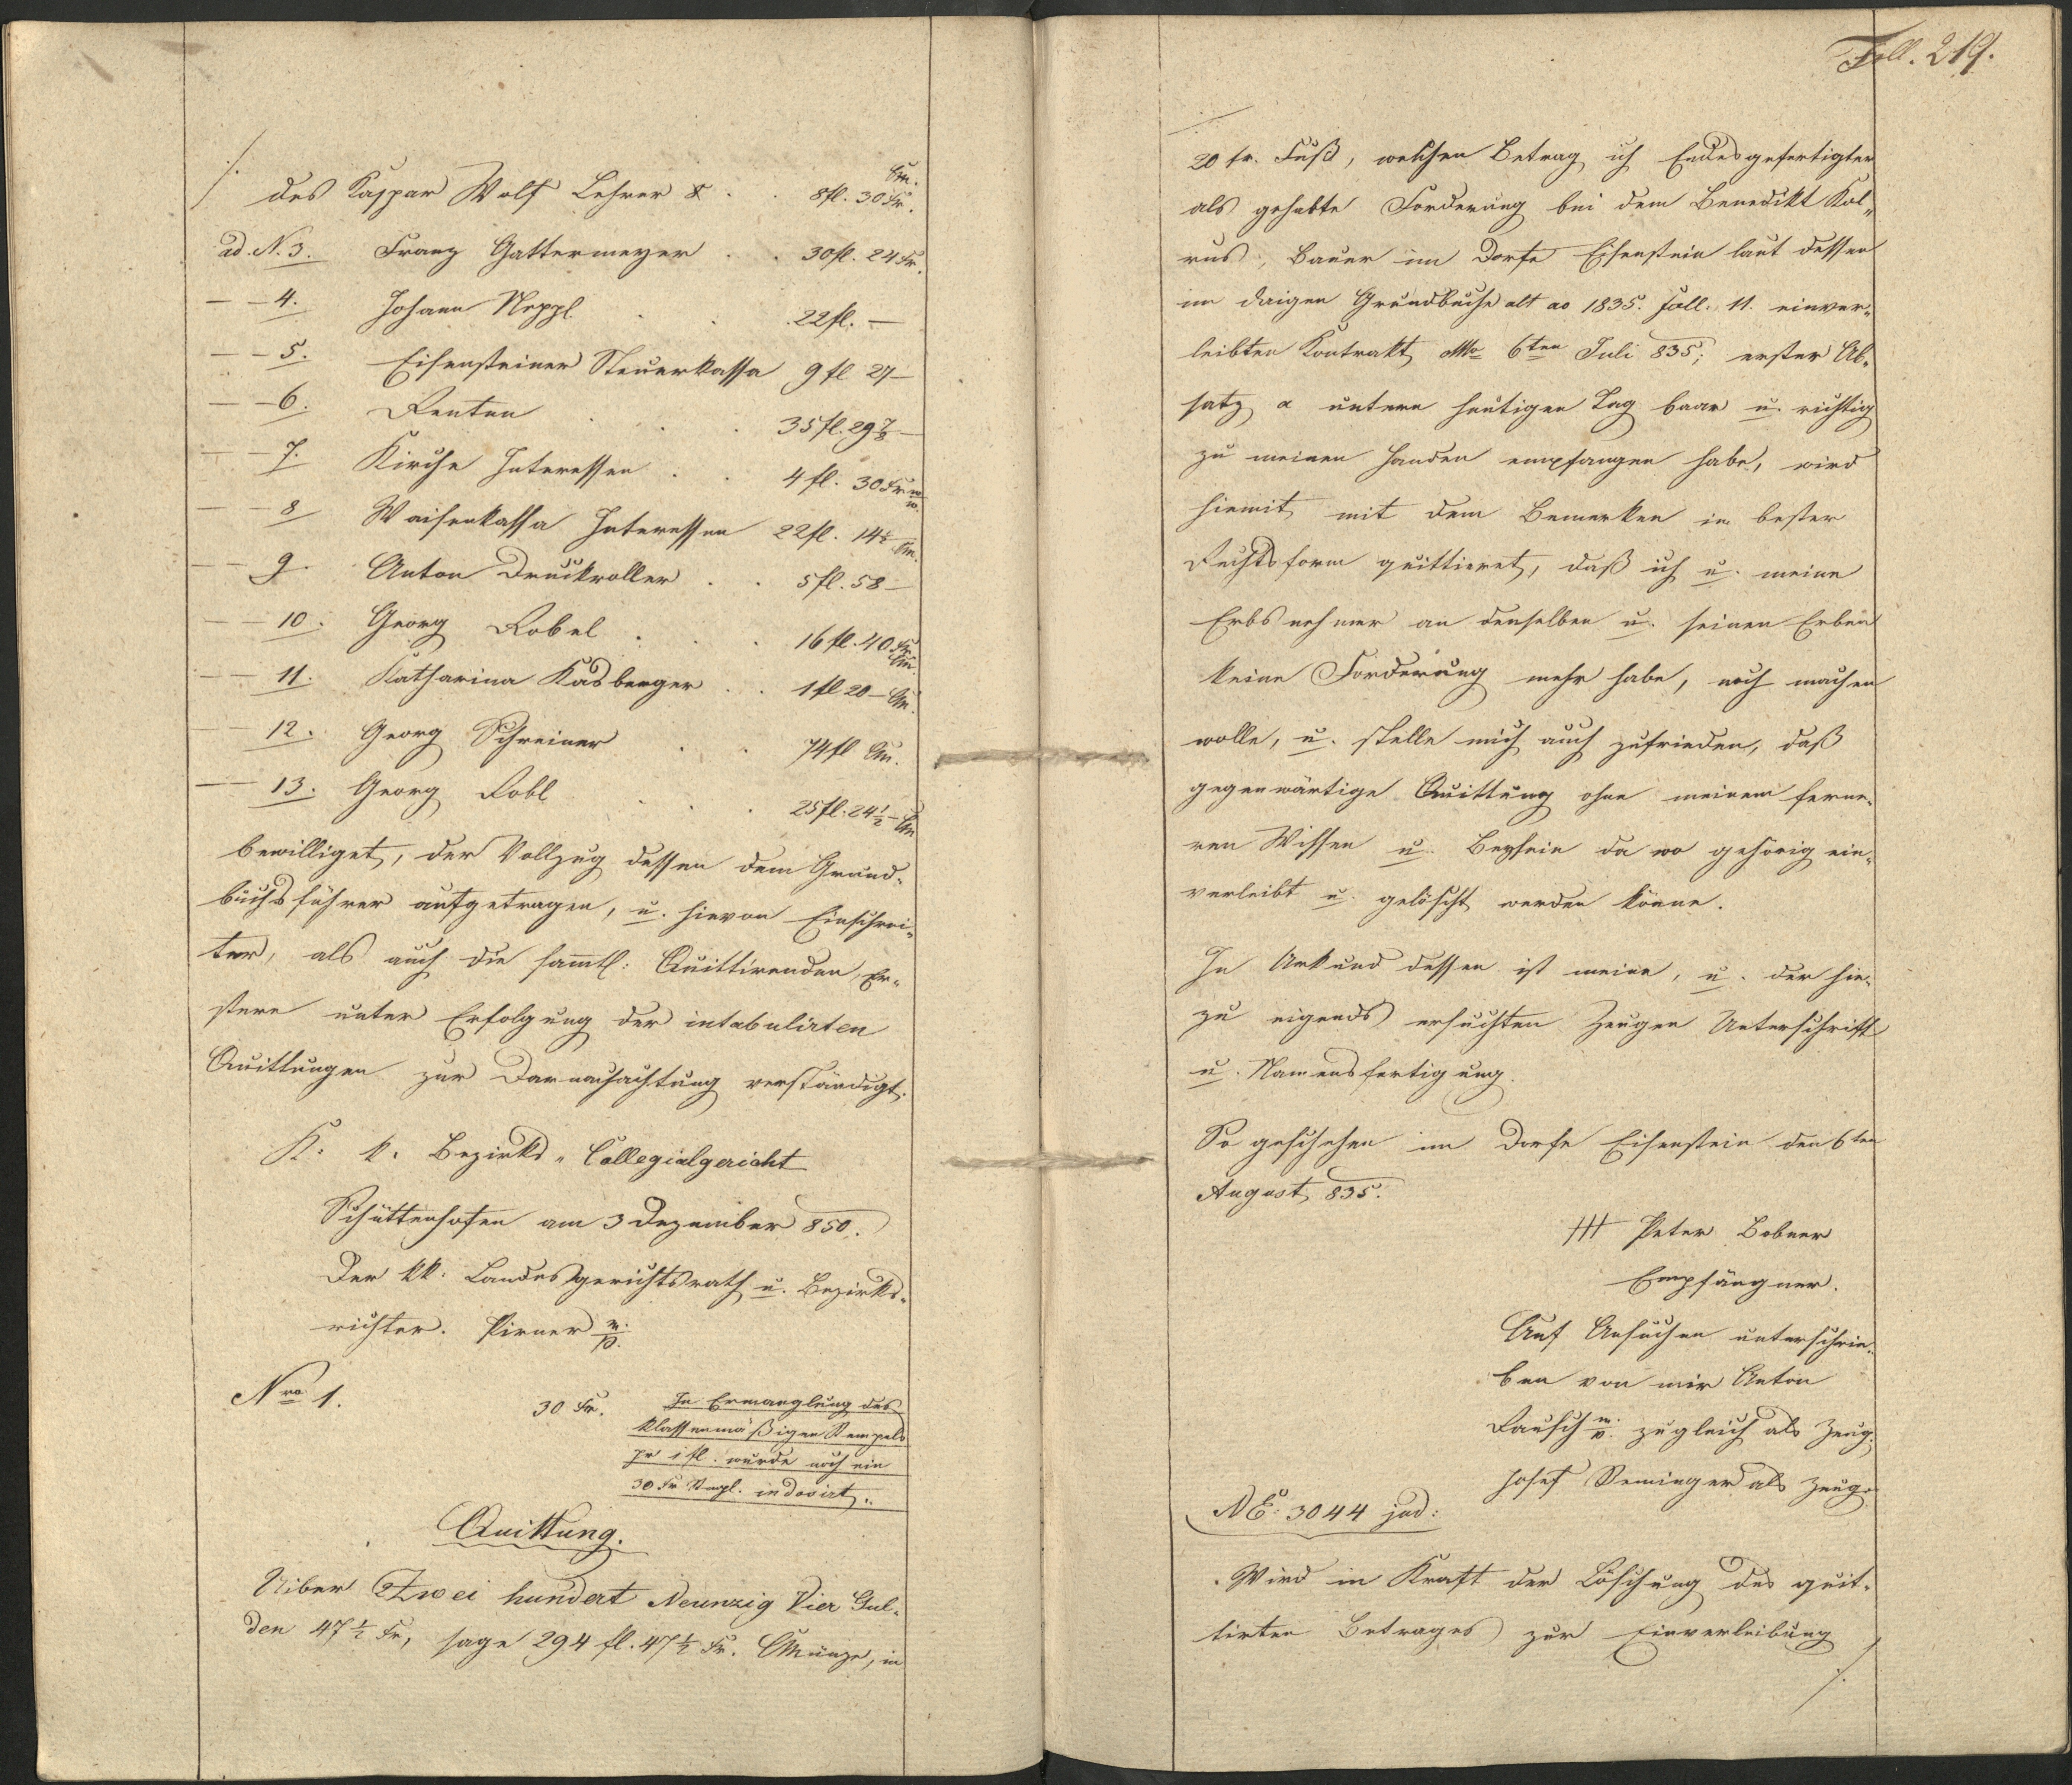 ./.
des Kaspar Wolf Lehrer & . . 8fl. 30 Kr. CM.
ad N. 3. Franz Gattermeyer . . 30fl. 24 Kr.
— — 4. Johann Neppl . . 22fl. —
— — 5. Eisensteiner Steuerkassa 9 fl 27 —
— — 6. Renten . . . 35 fl. 29 7/8 —
— — 7. Kirche Interessen . . 4 fl. 30 Kr W.W.
— — 8 Waisenkassa Interessen 22fl. 14½ CM.
— — 9. Anton Druckroller . . 5 fl. 58 —
— — 10. Georg Robel . . . 16 fl. 40 Kr. CM
— — 11. Katharina Kasberger . . 1 fl 20 — CM.
— — 12. Georg Schreiner . . 74 fl CM.
— — 13. Georg Robl . . . 25 fl. 24½ — CM
bewilliget, der Vollzug dessen dem Grund„
buchsführer aufgetragen, u. hievon Einschrei„
ter, als auch die sammtl: Quittirenden, Er„
stere unter Erfolgung der intabulirten
Quittungen zur Darnachachtung verständigt.
K. k. Bezirks „ Collegialgericht
Schüttenhofen am 3 Dezember 850.
Der kk. Landesgerichtsrath u. Bezirks„
richter. Pirner m.p.
Nro 1.
30 Kr. In Ermanglung des
klassenmäßigen Stempels
pr 1 fl. wurde noch ein
30 Kr Stempl. indosirt.
Quittung.
Uiber Zwei hundert Neunzig Vier Gul„
den 47½ Kr, sage 294 fl. 47½ Kr. CMünze, in
Foll. 219.
./.
20 fr. Fuß, welchen Betrag ich Endesgefertigter
als gehabte Forderung bei dem Benedikt Kol„
rus, Bauer im Dorfe Eisenstein laut dessen
im dasigen Grundbuche alt ao 1835. Foll. 11. einver„
leibten Kontrakt ddto 6ten Juli 835; erster Ab„
satz α unterm heutigen Tag baar u. richtig
zu meinen Handen empfangen habe, wird
hiemit mit dem Bemerken in bester
Rechtsform quittieret, daß ich u. meine
Erbsnehmer an denselben u. seinen Erben
keine Forderung mehr habe, noch machen
wolle, u. stelle mich auch zufrieden, daß
gegenwärtige Quittung ohne meinem ferne„
ren Wissen u. Beysein da wo gehörig ein„
verleibt u. gelöscht werden könne.
In Urkund dessen ist meine, u. der hie„
zu eigends ersuchten Zeugen Unterschrift
u. Namensfertigung.
So geschehen im Dorfe Eisenstein den 6ten
August 835.
+++ Peter Bobner
Empfängner.
Auf Ansuchen unterschrie„
ben von mir Anton
Rausch m.p. zugleich als Zeug.
Josef Seminger als Zeuge
NE: 3044 jud:
Wird in Kraft der Löschung des quit„
tirten Betrages zur Einverleibung
./.